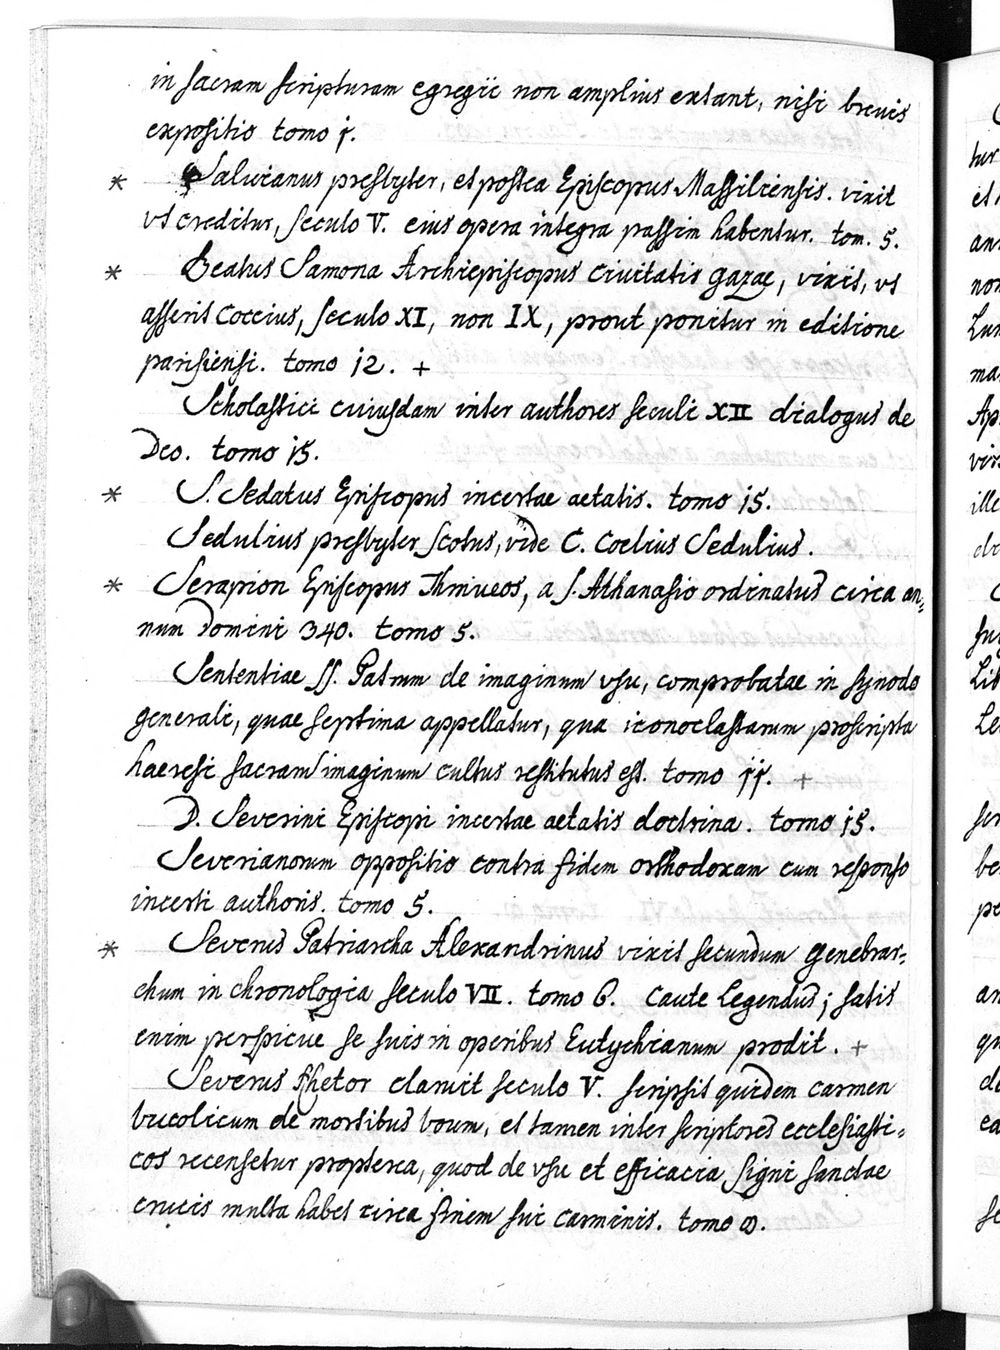 in sacram scripturam egregii non amplius extant, nisi brevis
expositio tomo j.
* Salvianus presbyter, et postea Episcopus Massiliensis. vixit
vt creditur, seculo V. eius opera integra passim habentur. tom. 5.
* Beatus Samona Archiepiscopus civitatis gazae, vixit, vt
asserit Coccius, seculo XI, non IX, prout ponitur in editione
parisiensi. tomo j2. +
Scholastici cuiusdam inter authores seculi XII dialogus de
Deo. tomo j5.
* S. Sedatus Episcopus incertae aetatis. tomo j5.
Sedulius presbyter Scotus, vide C. Coelius Sedulius.
* Serapion Episcopus Thmueos, a S. Athanasio ordinatus circa an-
num Domini 340. tomo 5.
Sententiae SS. Patrum de imaginum vsu, comprobatae in synodo
generali, quae septima appellatur, qua iconoclastarum proscripta
haeresi sacram imaginum cultus restitutus est. tomo jj. +
D. Severini Episcopi incertae aetatis doctrina. tomo j5.
Severianorum oppositio contra fidem orthodoxam cum responso
incerti authoris. tomo 5.
* Severus Patriarcha Alexandrinus vixit secundum Genebrar-
chum in chronologia seculo VII. tomo 6. Caute legendus; satis
enim perspicue se suis in operibus Eutychianum prodit. +
Severus Rhetor claruit seculo V. scripsit quidem carmen
bucolicum de mortibus boum, et tamen inter scriptores ecclesiasti-
cos recensetur propterea, quod de vsu et efficacia signi sanctae
crucis multa habet circa finem sui carminis. tomo 8.
tur